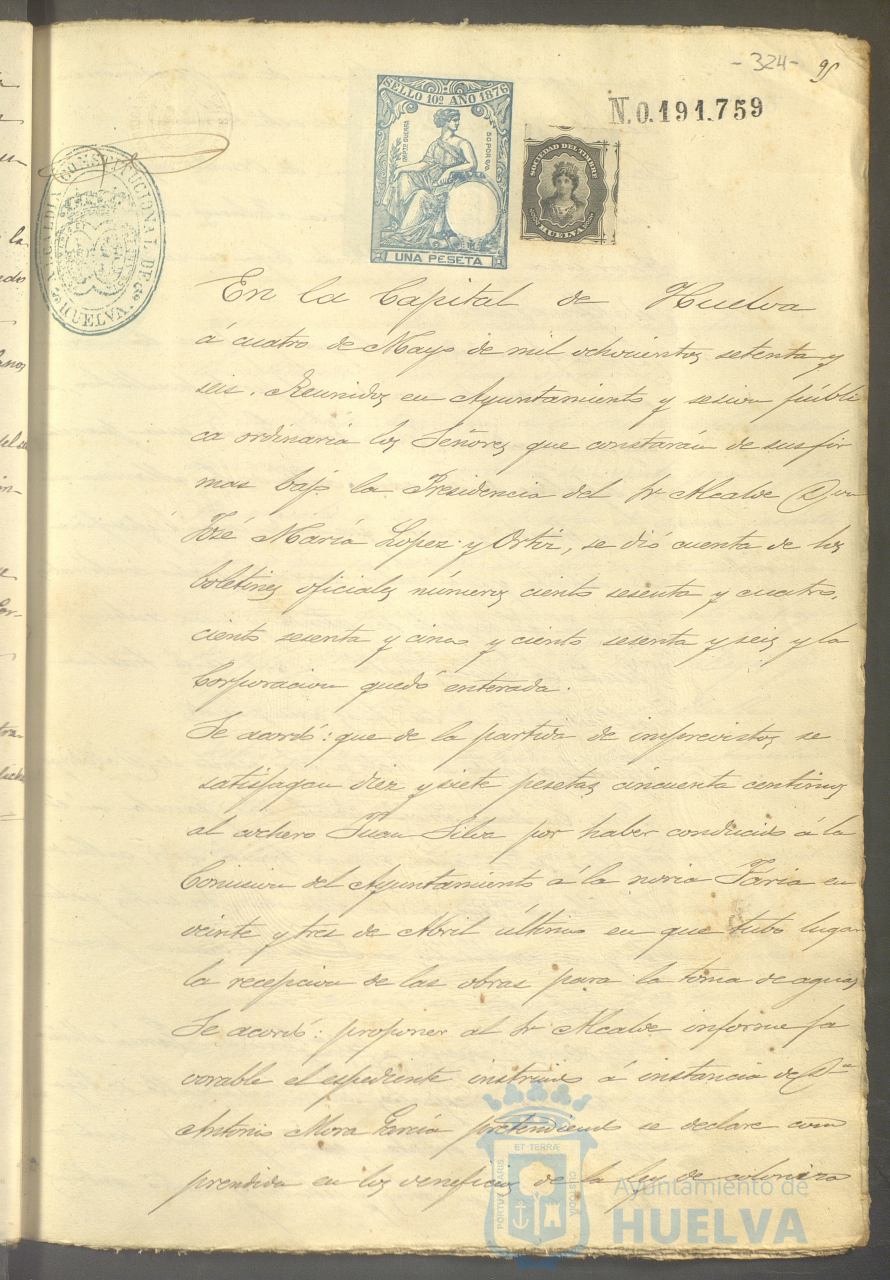 - 324 -
95
N.0.191.759
SELLO 10º AÑO 1876
IMPTO GUERRA
50 POR %
UNA PESETA
SOCIEDAD DEL TIMBRE
HUELVA
ALCALDIA CONSTITUCIONAL DE HUELVA.
En la Capital de Huelva
á cuatro de Mayo de mil ochocientos setenta y
seis. Reunidos en Ayuntamiento y sesion públi
ca ordinaria los Señores que constarán de sus fir
mas bajo la Presidencia del Sr Alcalde Don
José María Lopez y Ortiz, se dió cuenta de los
boletines oficiales números ciento sesenta y cuatro,
ciento sesenta y cinco y ciento sesenta y seis y la
Corporacion quedó enterada.
Se acordó: que de la partida de imprevistos se
satisfagan diez y siete pesetas cincuenta centimos
al cochero Juan Silva por haber conducido á la
Comision del Ayuntamiento á la noria Faria en
veinte y tres de Abril último en que tubo lugar
la recepcion de las obras para la toma de aguas
Se acordó: proponer al Sr Alcalde informe fa
vorable el espediente instruido á instancia de Dn
Antonio Mora García pretendiendo se declare com
prendida en los veneficios de la ley de colonias
PORTUS MARIS
ET TERRÆ
CUSTODIA
Ayuntamiento de
HUELVA